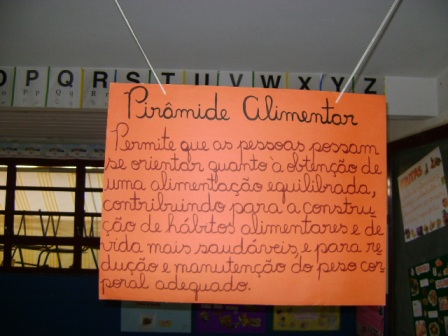 O P Q R S T U V W X Y Z
Pirâmide Alimentar
Permite que as pessoas possam
se orientar quanto à obtenção de
uma alimentação equilibrada,
contribuindo para a constru_
ção de hábitos alimentares e de
vida mais saudáveis, e para re_
dução e manutenção do peso cor_
poral adequado.